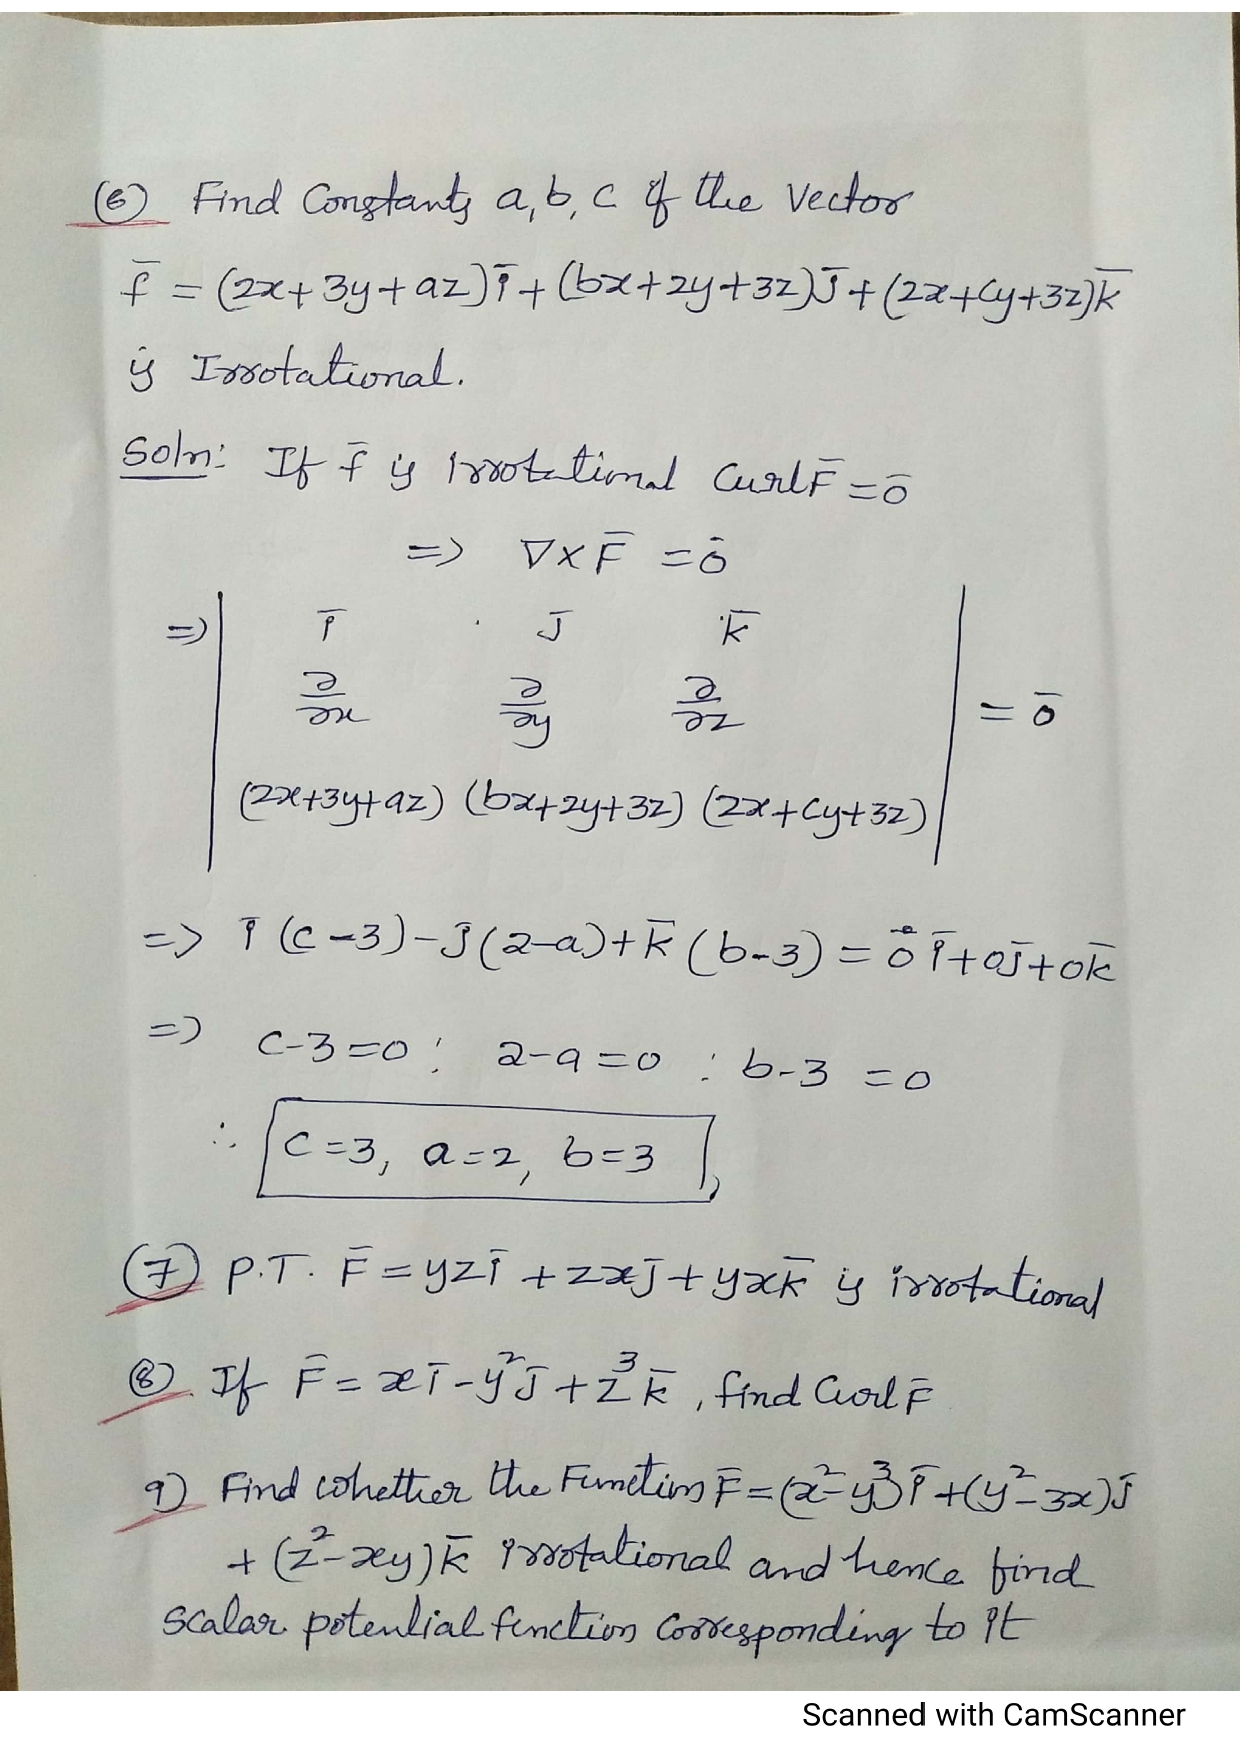 (6) Find Constants a, b, c if the Vector
f̄ = (2x+3y+az)ī + (bx+2y+3z)j̄ + (2x+cy+3z)k̄
is Irrotational.
Soln: If f̄ is irrotational Curl F̄ = ō
=> ∇×F̄ = ō
=> | ī j̄ k̄ |
∂/∂x ∂/∂y ∂/∂z = ō
(2x+3y+az) (bx+2y+3z) (2x+cy+3z)
=> ī (c-3) - j̄ (2-a) + k̄ (b-3) = 0ī+0j̄+0k̄
=> c-3=0 ; 2-a=0 ; b-3=0
∴ c=3, a=2, b=3
(7) P.T. F̄ = yzī + zxj̄ + yxk̄ is irrotational
(8) If F̄ = xī - y²j̄ + z³k̄, find Curl F̄
9) Find whether the Function F̄ = (x²-y³)ī + (y²-3x)j̄
+ (z²-xy)k̄ irrotational and hence find
scalar potential function corresponding to it
Scanned with CamScanner